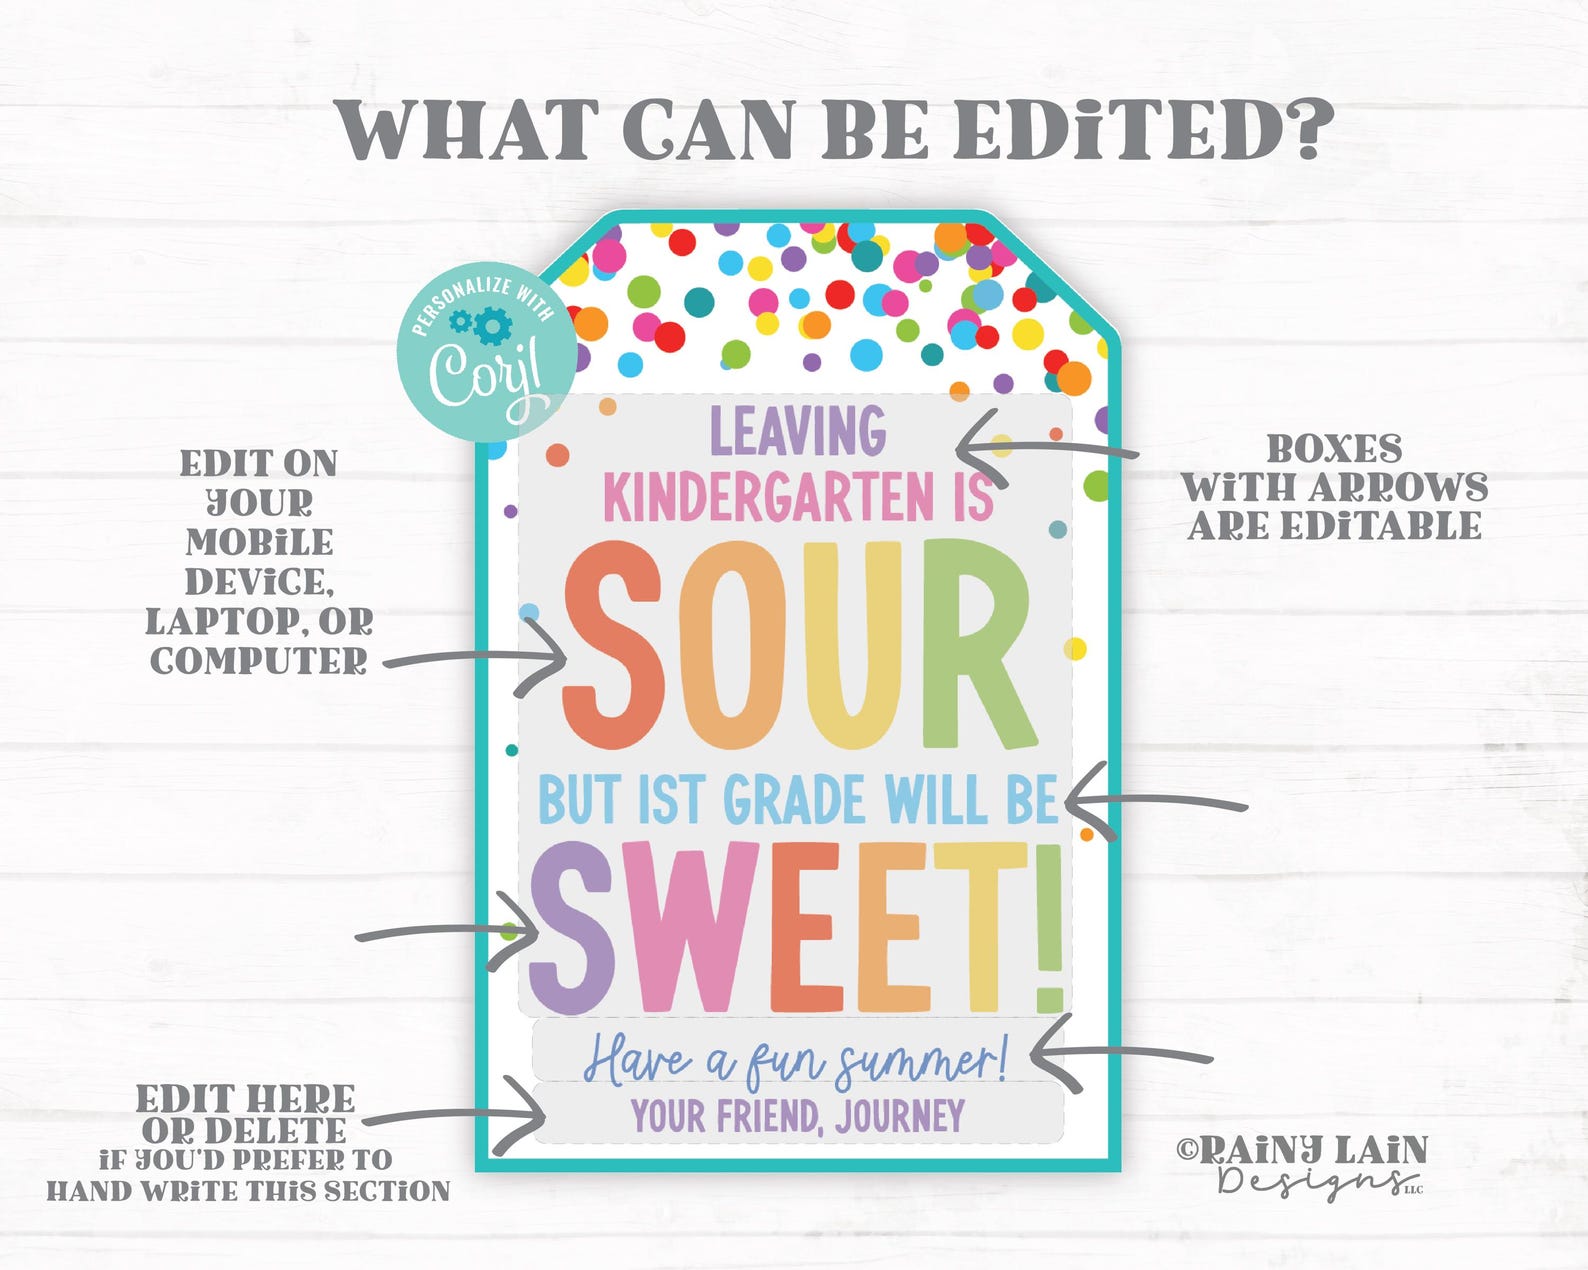 WHAT CAN BE EDiTED?
PERSONALIZE WITH
Corjl
LEAVING
KINDERGARTEN IS
SOUR
BUT 1ST GRADE WILL BE
SWEET!
Have a fun summer!
YOUR FRIEND, JOURNEY
EDIT ON
YOUR
MOBiLE
DEViCE,
LAPTOP, OR
COMPUTER
BOXES
WiTH ARROWS
ARE EDiTABLE
EDIT HERE
OR DELETE
iF YOU'D PREFER TO
HAND WRiTE THiS SECTiON
©RAiNY LAiN
Designs LLC